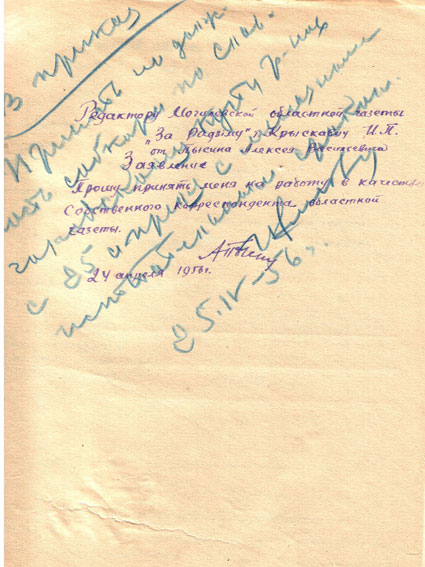 В приказ
Принять на долж-
ность собкора по Слав-
городскому, р-нах
с 25 апреля с месячным
испытательным сроком.
25.IV-56 г.
Редактору Могилевской областной газеты
"За Радзiму" т. Крыскевич И.П.
от Пысина Алексея Васильевича
Заявление
Прошу принять меня на работу в качестве
Собственного корреспондента областной
газеты.
АПысин
24 апреля 1956 г.